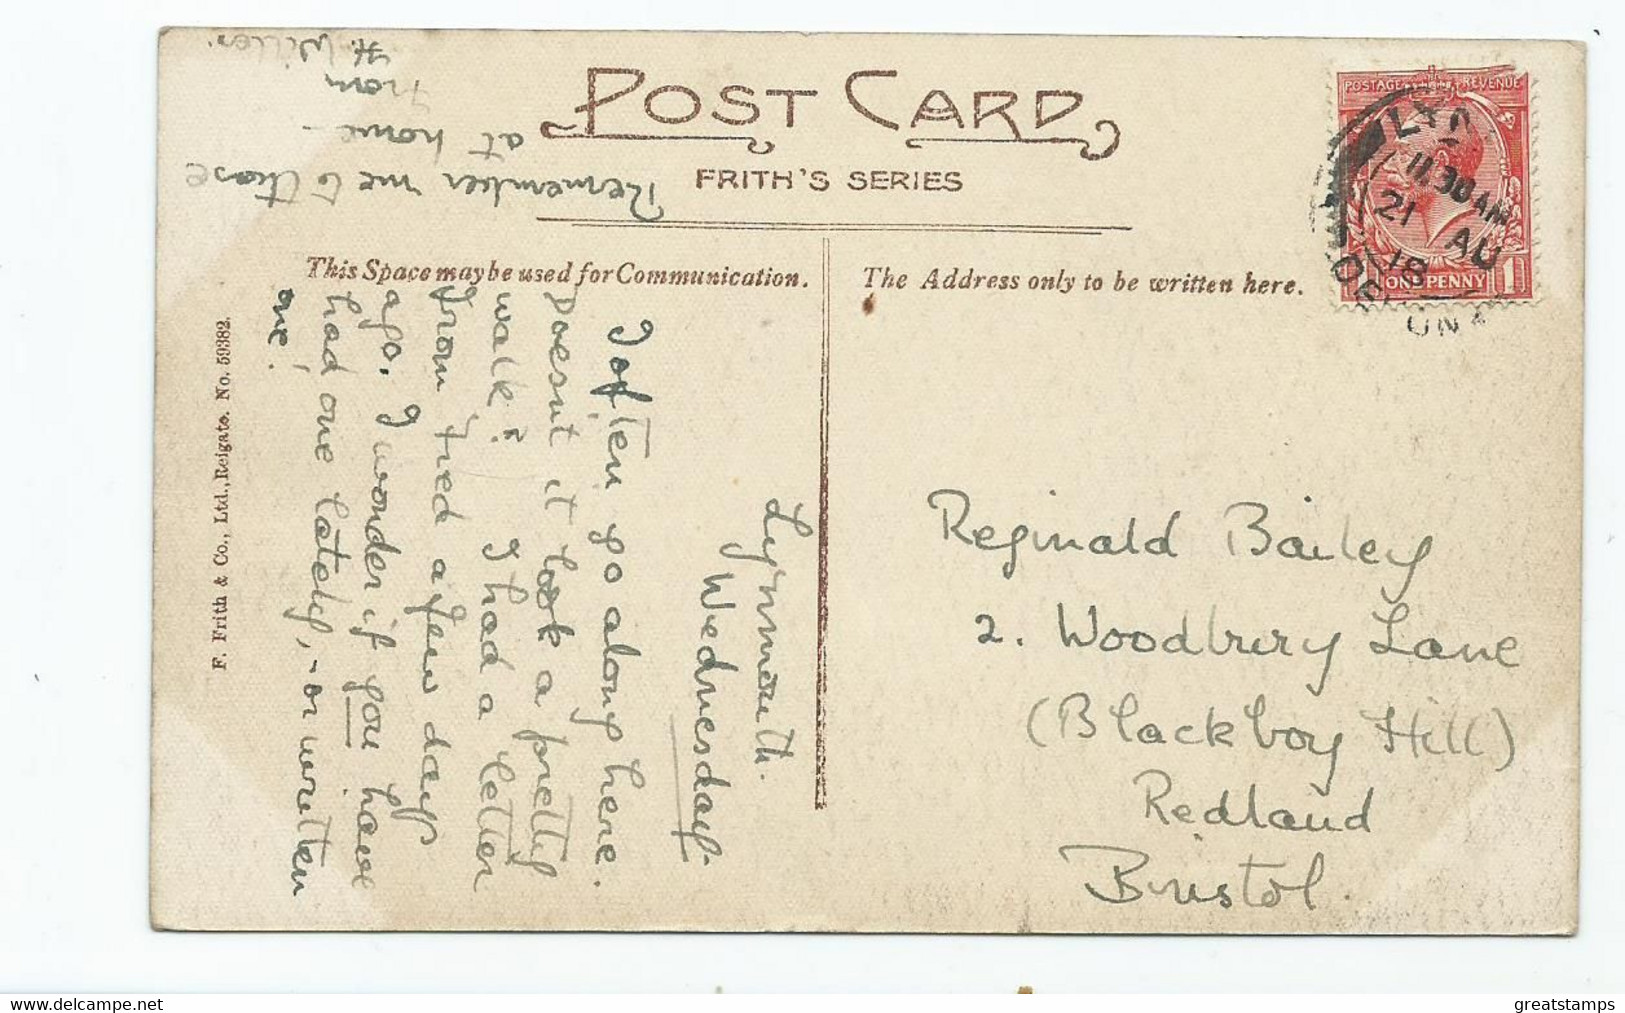 POST CARD
FRITH'S SERIES
This Space may be used for Communication.
The Address only to be written here.
F. Frith & Co., Ltd., Reigate. No. 59382.
POSTAGE REVENUE
ONE PENNY 1
LYN
11.30 AM
21 AU
18
DEVON
Lynmouth.
Wednesday.
I often go along here.
Doesn't it look a pretty
walk? I had a letter
from Fred a few days
ago, I wonder if you have
had one lately, - or written
one!
Remember me to those
at home -
From
H.
Reginald Bailey
2. Woodbury Lane
(Blackboy Hill)
Redland
Bristol.
delcampe.net
greatstamps